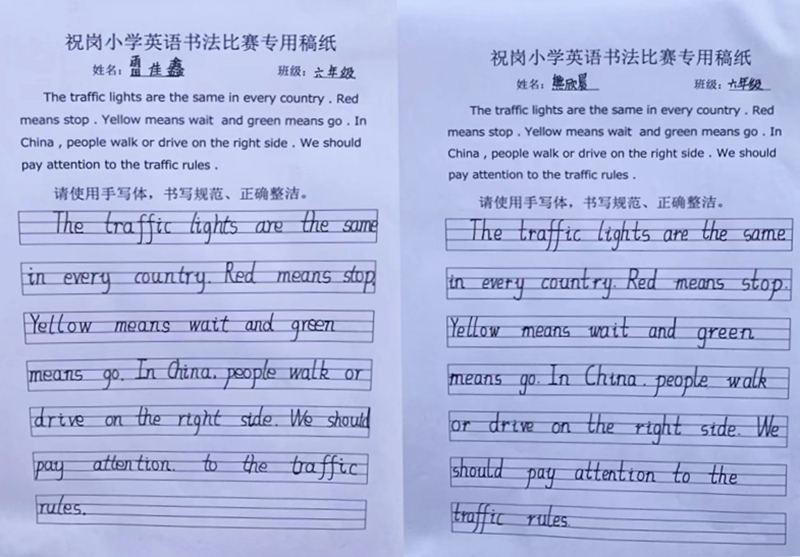 祝岗小学英语书法比赛专用稿纸
姓名：雷佳鑫 班级：六年级
The traffic lights are the same in every country . Red
means stop . Yellow means wait and green means go . In
China , people walk or drive on the right side . We should
pay attention to the traffic rules .
请使用手写体，书写规范、正确整洁。
The traffic lights are the same
in every country. Red means stop.
Yellow means wait and green
means go. In China, people walk or
drive on the right side. We should
pay attention. to the traffic
rules.
祝岗小学英语书法比赛专用稿纸
姓名：熊欣晨 班级：六年级
The traffic lights are the same in every country . Red
means stop . Yellow means wait and green means go . In
China , people walk or drive on the right side . We should
pay attention to the traffic rules .
请使用手写体，书写规范、正确整洁。
The traffic lights are the same
in every country. Red means stop.
Yellow means wait and green
means go. In China, people walk
or drive on the right side. We
should pay attention to the
traffic rules.